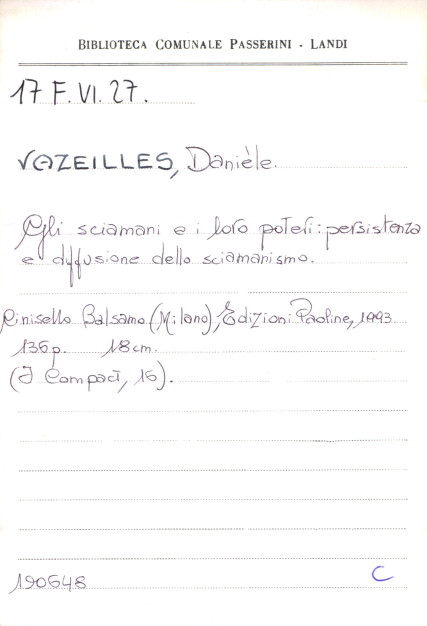 BIBLIOTECA COMUNALE PASSERINI - LANDI
17 F. VI. 27.
VAZEILLES, Danièle.
Gli sciamani e i loro poteri: persistenza
e diffusione dello sciamanismo.
Cinisello Balsamo (Milano), Edizioni Paoline, 1993.
136p. 18cm.
(I Compact, 16).
190648
C